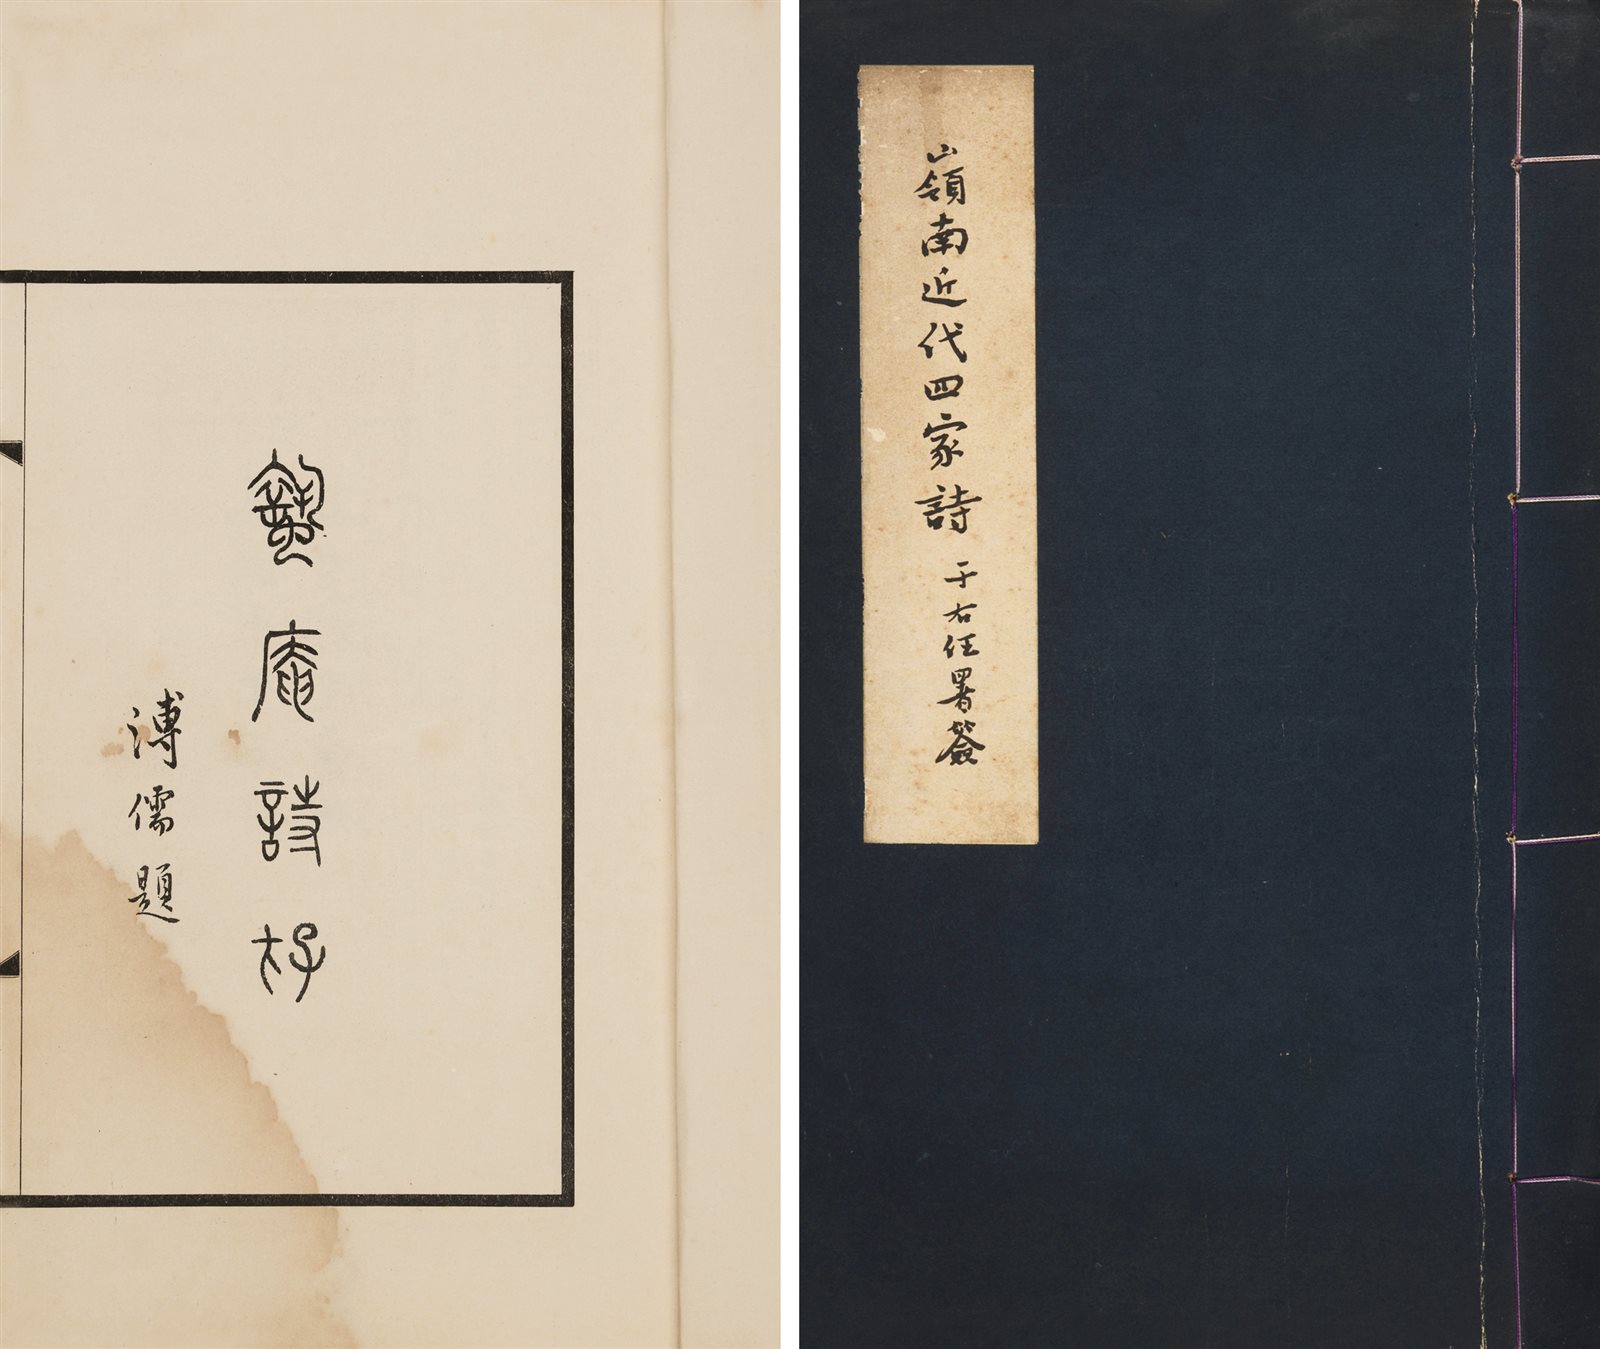 蟄庵詩存
溥儒題
嶺南近代四家詩 于右任署簽